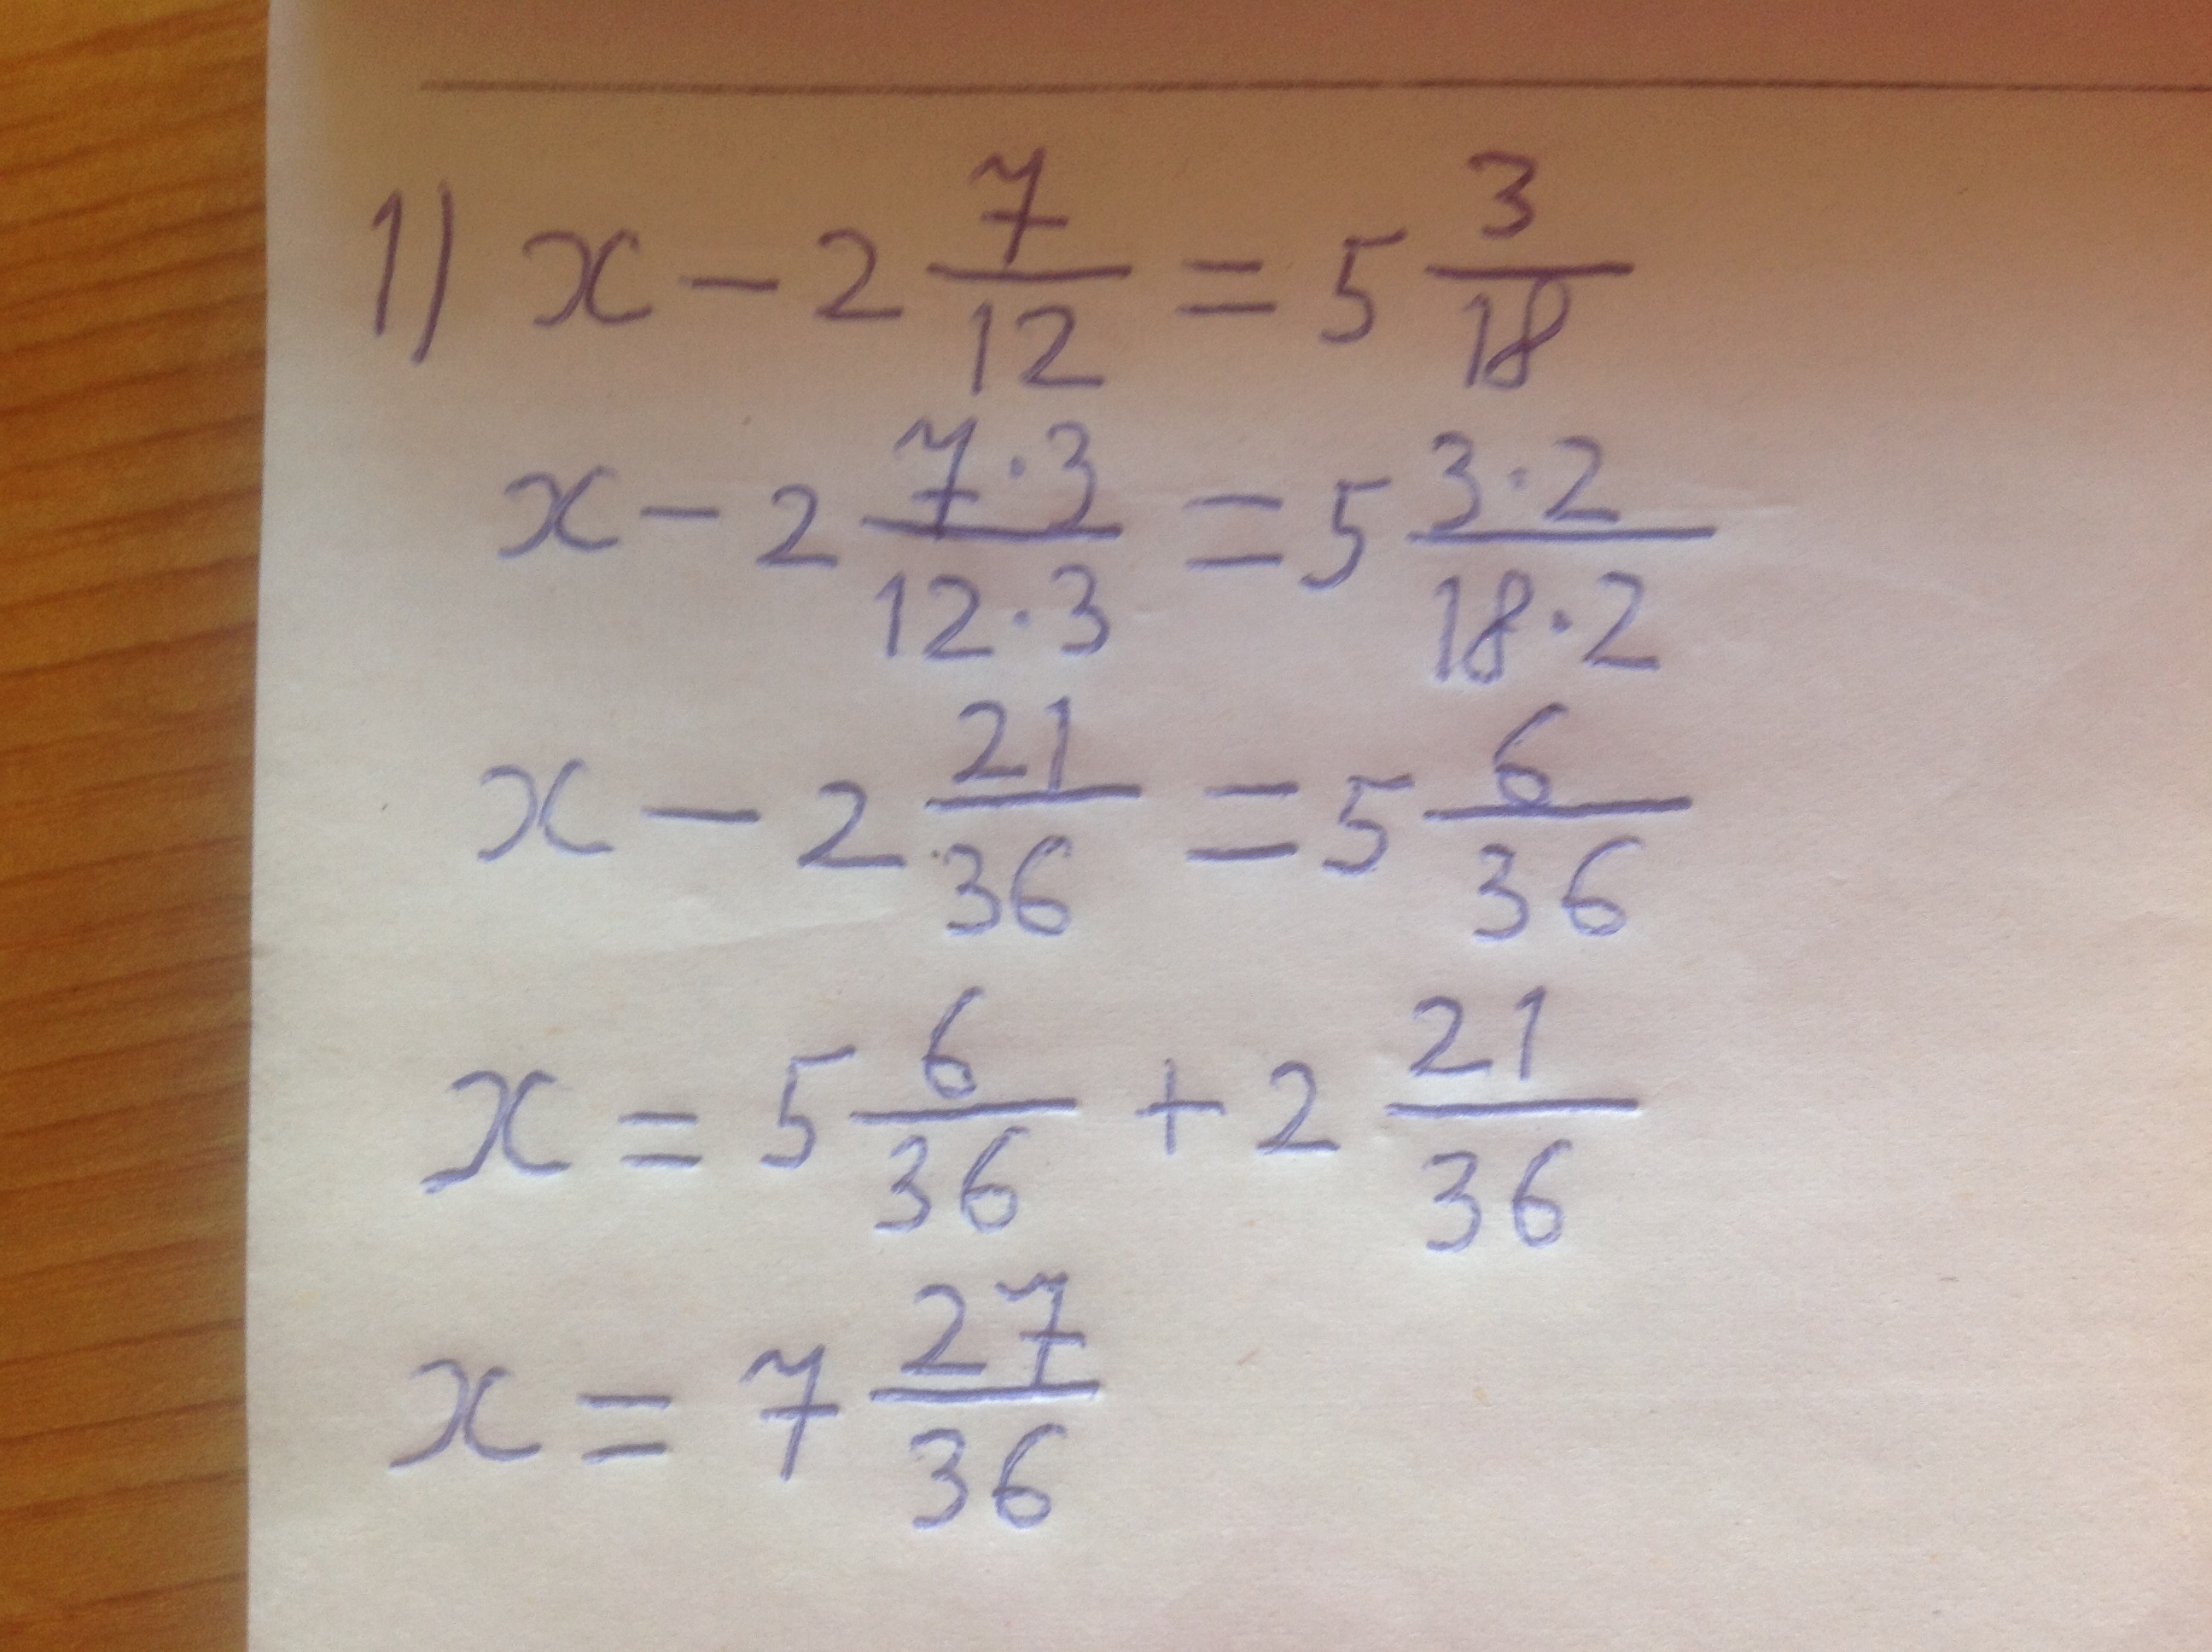 1) x - 2 7/12 = 5 3/18
x - 2 7·3/12·3 = 5 3·2/18·2
x - 2 21/36 = 5 6/36
x = 5 6/36 + 2 21/36
x = 7 27/36